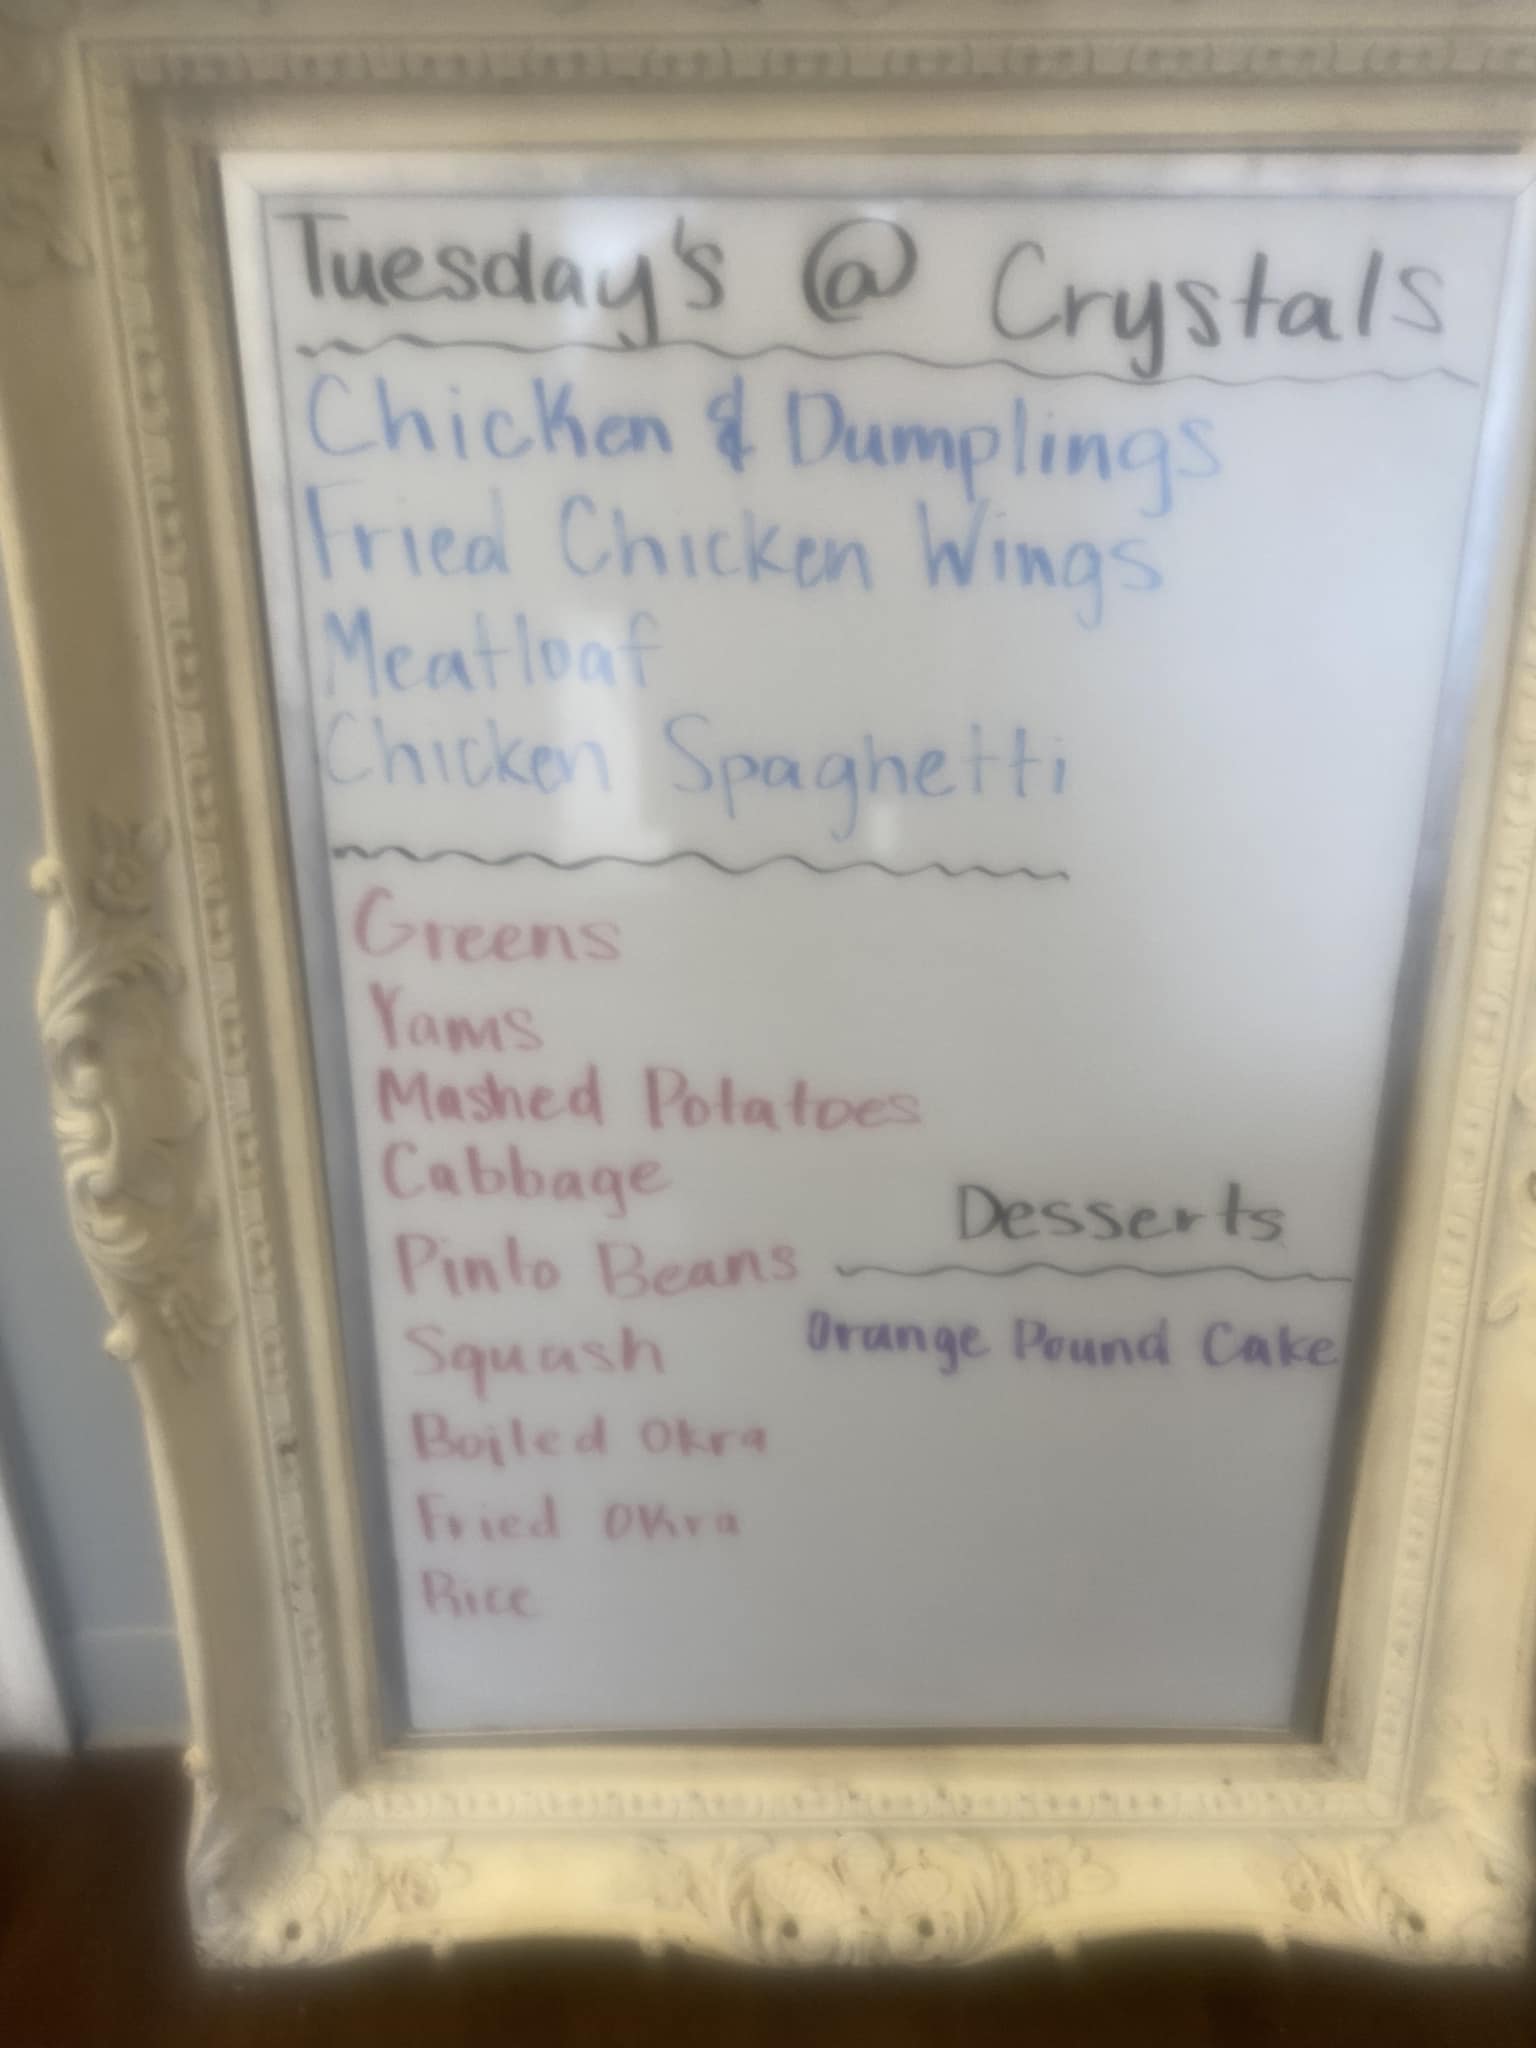 Tuesday's @ Crystals
Chicken & Dumplings
Fried Chicken Wings
Meatloaf
Chicken Spaghetti
Greens
Yams
Mashed Potatoes
Cabbage
Pinto Beans
Squash
Boiled Okra
Fried Okra
Rice
Desserts
Orange Pound Cake